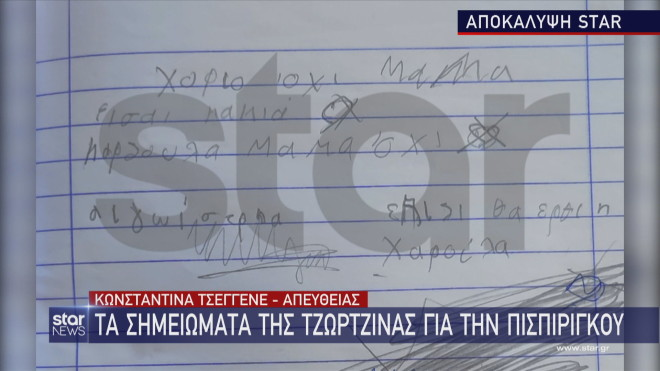 ΑΠΟΚΑΛΥΨΗ STAR
χοριο όχι μαμα
εισαι κακιά
μαμα όχι
επισι θα ερθι η
Χαρούλα
star
ΚΩΝΣΤΑΝΤΙΝΑ ΤΣΕΓΓΕΝΕ - ΑΠΕΥΘΕΙΑΣ
star NEWS
ΤΑ ΣΗΜΕΙΩΜΑΤΑ ΤΗΣ ΤΖΩΡΤΖΙΝΑΣ ΓΙΑ ΤΗΝ ΠΙΣΠΙΡΙΓΚΟΥ
www.star.gr